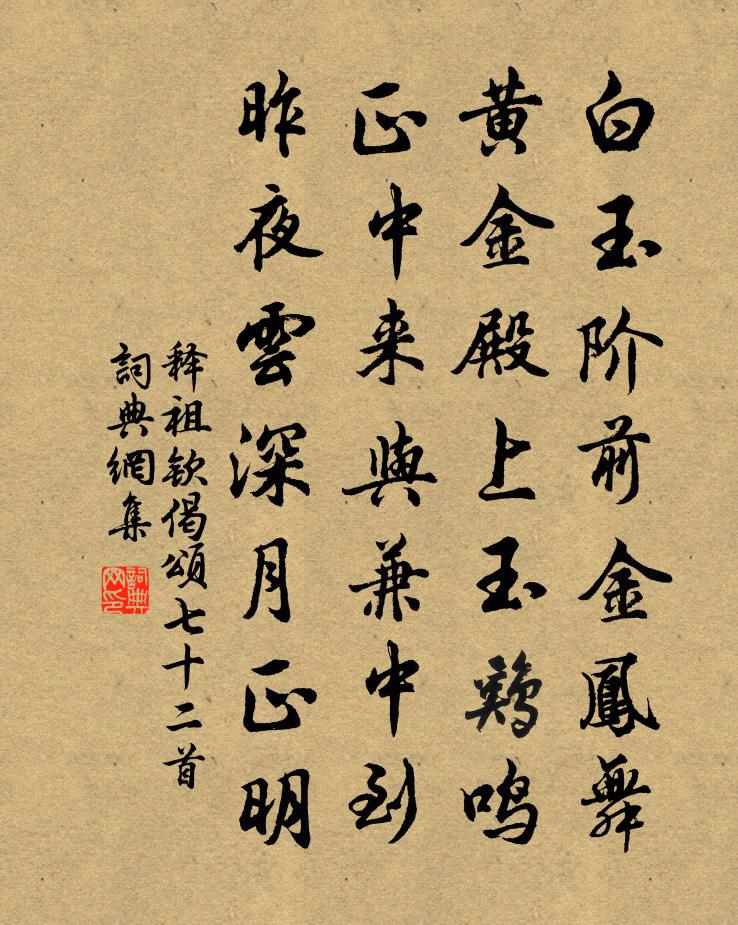 白玉阶前金鳳舞
黄金殿上玉鷄鳴
正中来與兼中到
昨夜雲深月正明
释祖钦偈頌七十二首
詞典網集
詞典网印